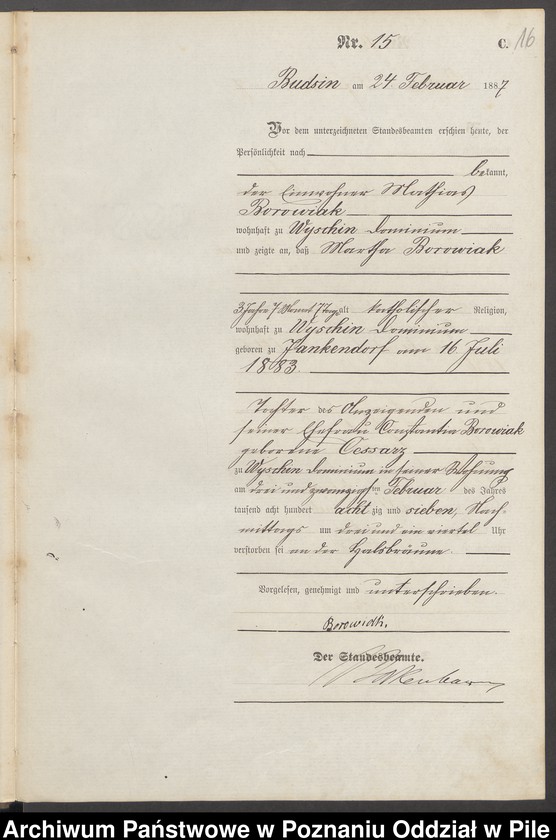 Nr. 15 C. 16
Budsin am 24 Februar 1887
Vor dem unterzeichneten Standesbeamten erschien heute, der
Persönlichkeit nach
bekannt,
der Einwohner Mathias
Borowiak
wohnhaft zu Wyschin Dominium
und zeigte an, daß Martha Borowiak
3 Jahre 7 Monat 7 Tage alt katholischer Religion,
wohnhaft zu Wyschin Dominium
geboren zu Jankendorf am 16 Juli
1883
Tochter des Anzeigenden und
seiner Ehefrau Constantia Borowiak
geborene Cessarz
zu Wyschin Dominium in seiner Wohnung
am drei und zwanzigsten Februar des Jahres
tausend acht hundert achtzig und sieben, Nach-
mittags um drei und ein viertel Uhr
verstorben sei an der Halsbräune
Vorgelesen, genehmigt und unterschrieben.
Borowiak.
Der Standesbeamte.